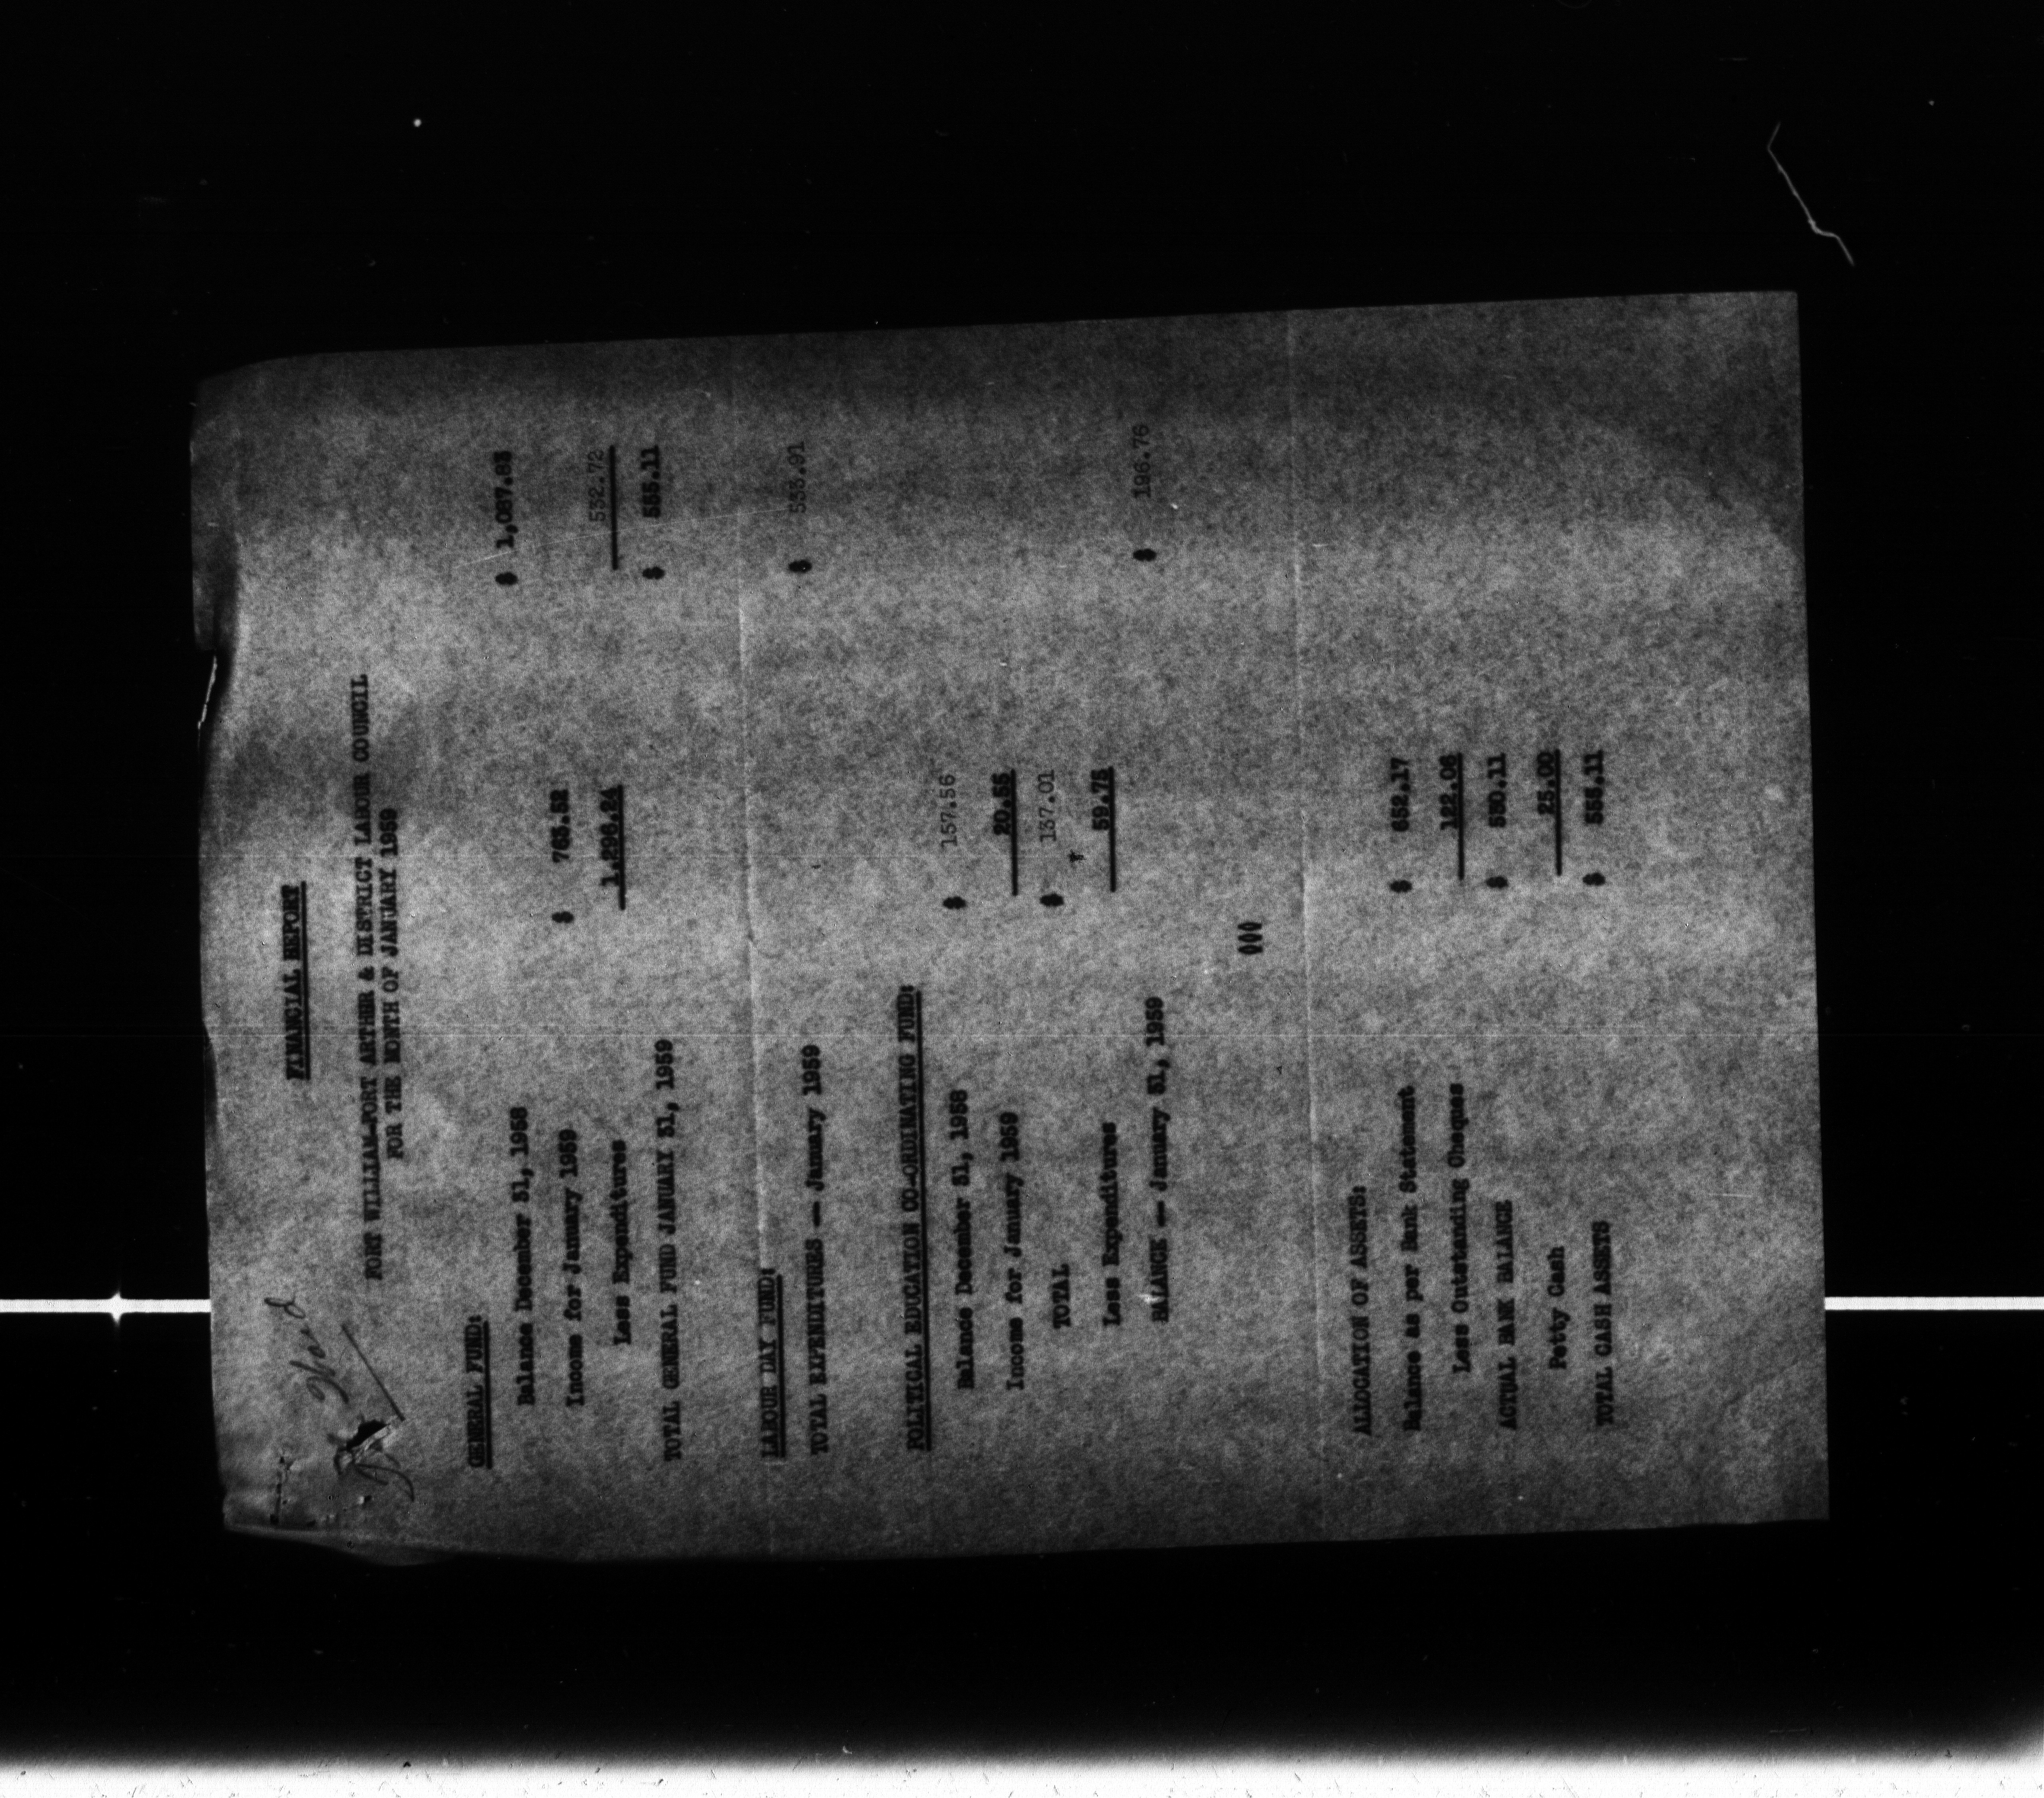 FINANCIAL REPORT
FORT WILLIAM-PORT ARTHUR & DISTRICT LABOUR COUNCIL
FOR THE MONTH OF JANUARY 1959
GENERAL FUND:
Balance December 31, 1958 $ 1,087.83
Income for January 1959 $ 763.52
Less Expenditures 1,296.24 532.72
TOTAL GENERAL FUND JANUARY 31, 1959 $ 555.11
LABOUR DAY FUND:
TOTAL EXPENDITURES -- January 1959 $ 533.91
POLITICAL EDUCATION CO-ORDINATING FUND:
Balance December 31, 1958 $ 157.56
Income for January 1959 20.55
TOTAL $ 137.01
Less Expenditures + 59.75
BALANCE -- January 31, 1959 $ 196.76
000
ALLOCATION OF ASSETS:
Balance as per Bank Statement $ 652.17
Less Outstanding Cheques 122.06
ACTUAL BANK BALANCE $ 530.11
Petty Cash 25.00
TOTAL CASH ASSETS $ 555.11